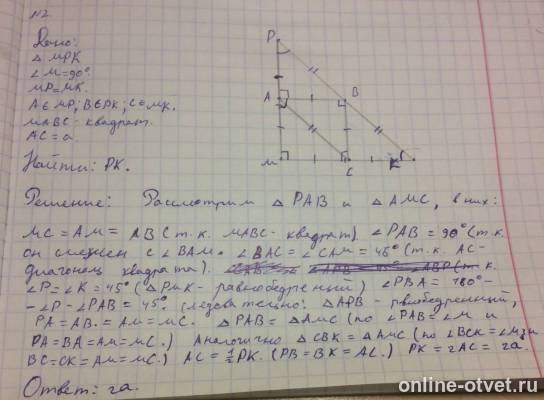 №2.
Дано:
△ MPK
∠M=90°
MP=MK.
A∈MP; B∈PK; C∈MK.
MABC - квадрат.
AC=a.
Найти: PK.
P
A
B
M
C
K
Решение: Рассмотрим △ PAB и △ AMC, в них:
MC = AM = AB (т.к. MABC - квадрат). ∠PAB = 90° (т.к.
он смежен с ∠BAM. ∠BAC = ∠CAM = 45° (т.к. AC-
диагональ квадрата).
∠P=∠K = 45° (△PMK - равнобедренный) ∠PBA = 180°-
-∠P - ∠PAB = 45°. следовательно: △APB - равнобедренный,
PA = AB = AM = MC. △PAB = △AMC (по ∠PAB = ∠M и
PA = BA = AM = MC.) Аналогично △CBK = △AMC (по ∠BCK = ∠M и
BC = CK = AM = MC.) AC = ½PK. (PB = BK = AC.) PK = 2AC = 2a.
Ответ: 2a.
online-otvet.ru